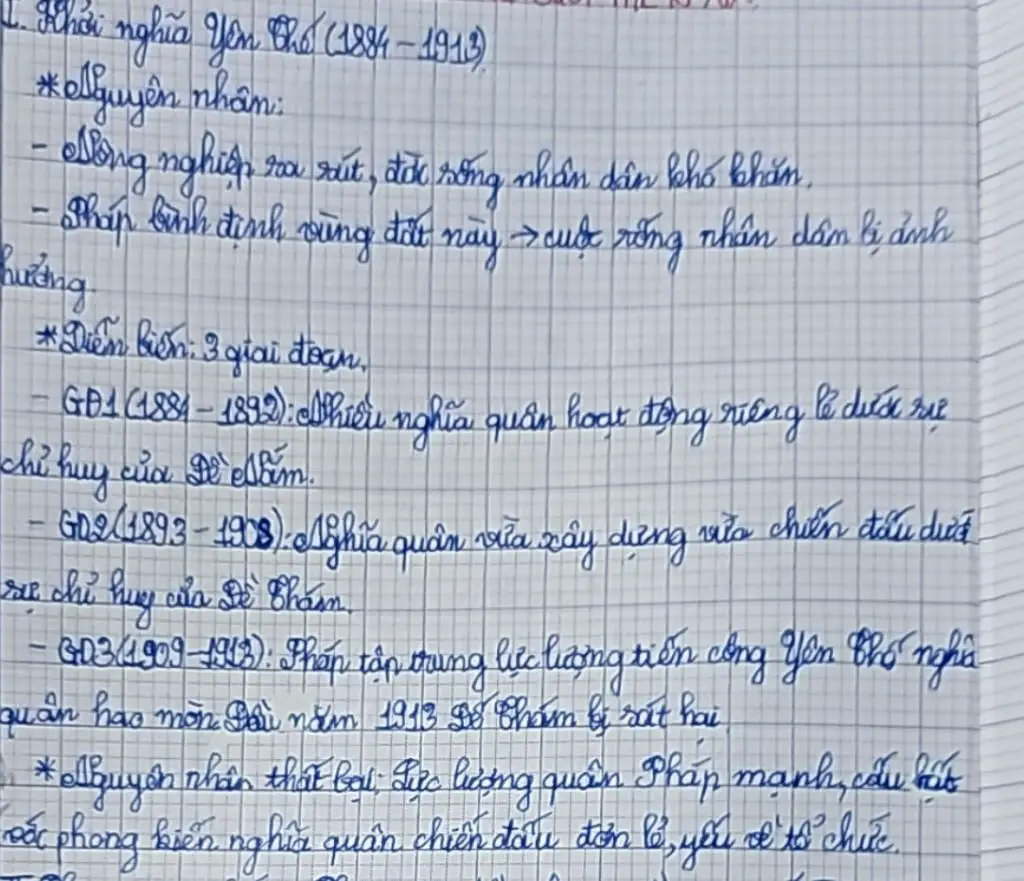 I. Khởi nghĩa Yên Thế (1884 - 1913)
* Nguyên nhân:
- Nông nghiệp sa sút, đời sống nhân dân khó khăn.
- Pháp bình định vùng đất này → cuộc sống nhân dân bị ảnh
hưởng.
* Diễn biến: 3 giai đoạn.
- GĐ1 (1884 - 1892): Nhiều nghĩa quân hoạt động riêng lẽ dưới sự
chỉ huy của Đề Nắm.
- GĐ2 (1893 - 1908): Nghĩa quân vừa xây dựng vừa chiến đấu dưới
sự chỉ huy của Đề Thám.
- GĐ3 (1909 - 1913): Pháp tập trung lực lượng tiến công Yên Thế nghĩa
quân hao mòn Đầu năm 1913 Đề Thám bị sát hại
* Nguyên nhân thất bại: Lực lượng quân Pháp mạnh, cấu kết
phong kiến nghĩa quân chiến đấu đơn lẻ, yếu về tổ chức.